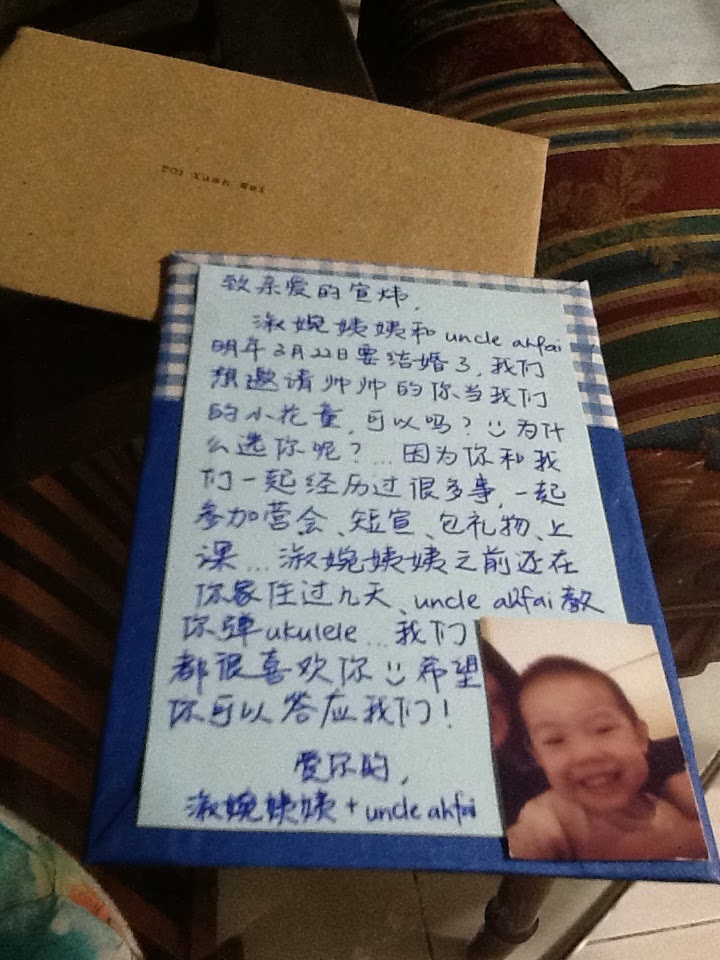 TO: Xuan Wei
致亲爱的宣炜,
淑婉姨姨和 uncle ahfai
明年3月22日要结婚了,我们
想邀请帅帅的你当我们
的小花童,可以吗?☺为什
么选你呢?...因为你和我
们一起经历过很多事,一起
参加营会、短宣、包礼物、上
课...淑婉姨姨之前还在
你家住过几天、uncle ahfai教
你弹ukulele...我们
都很喜欢你☺希望
你可以答应我们!
爱你的,
淑婉姨姨+uncle ahfai